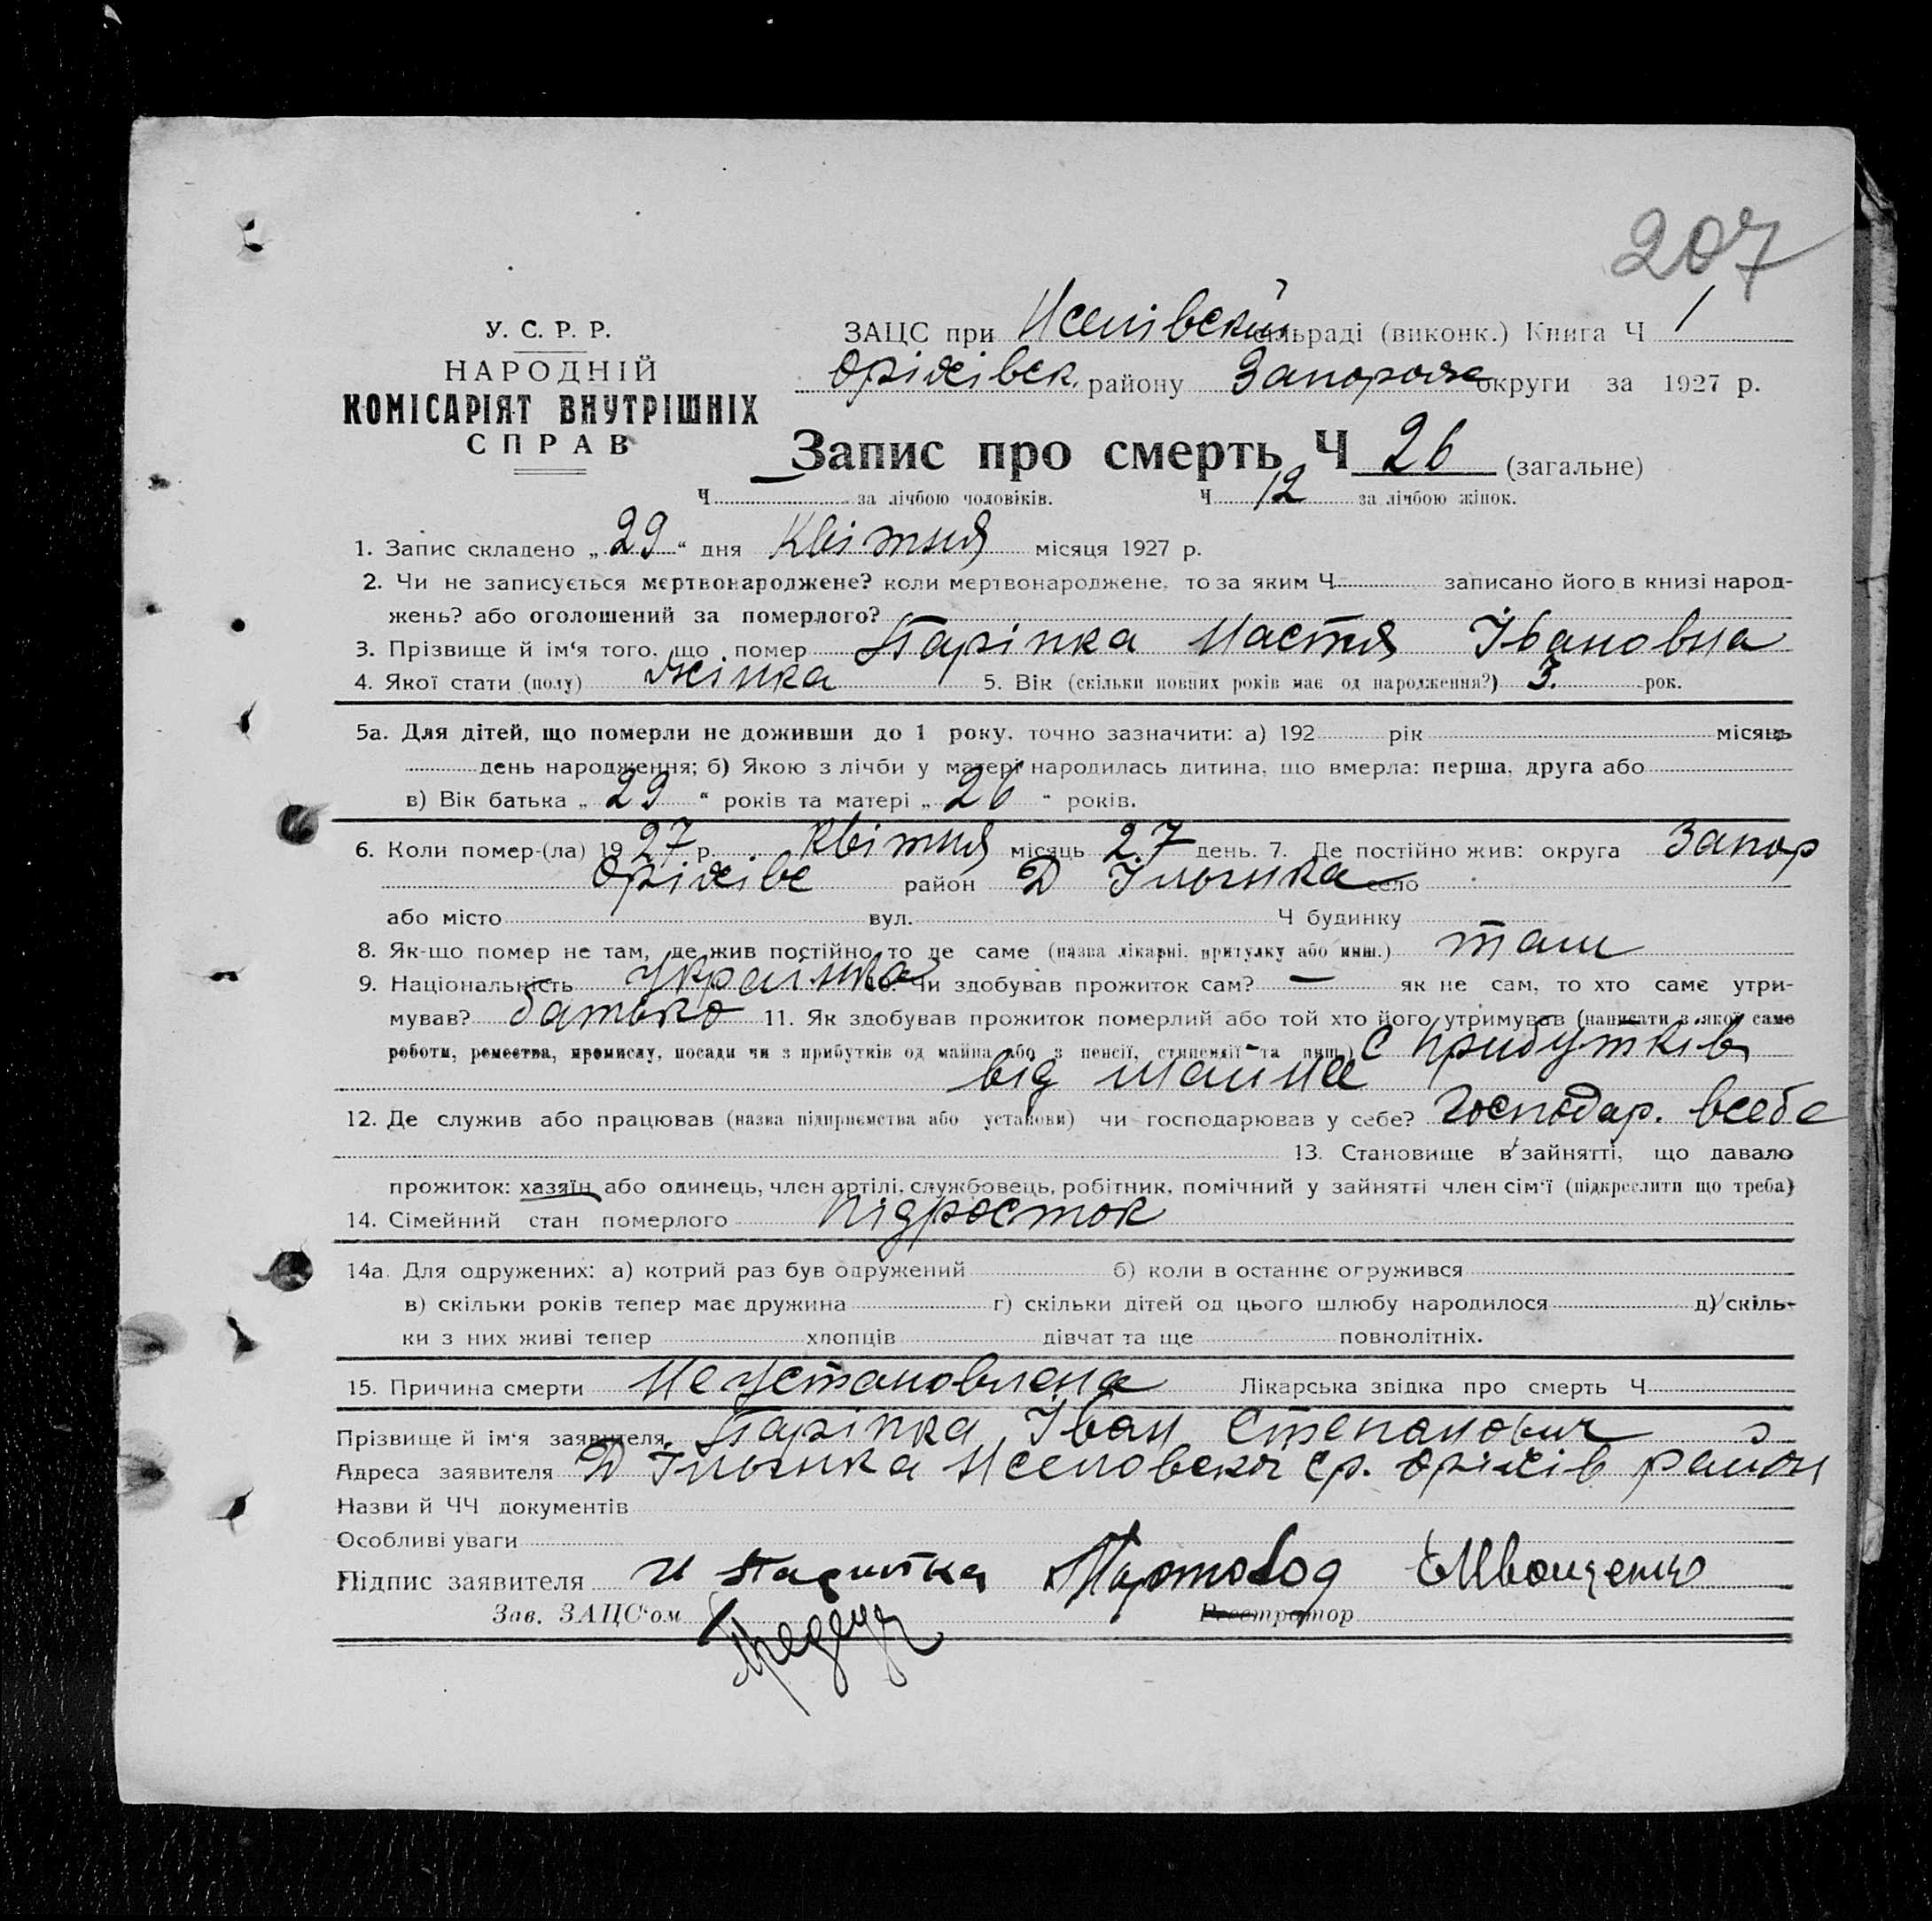 207
У. С. Р. Р.
НАРОДНІЙ
КОМІСАРІЯТ ВНУТРІШНІХ
СПРАВ
ЗАЦС при сільраді (виконк.) Книга Ч 1
Оріхівск. району Запорож округи за 1927 р.
Запис про смерть Ч 26 (загальне)
Ч за лічбою чоловіків. Ч 12 за лічбою жінок.
1. Запис складено „29“ дня Квітня місяця 1927 р.
2. Чи не записується мертвонароджене? коли мертвонароджене, то за яким Ч записано його в книзі народ-
жень? або оголошений за померлого?
3. Прізвище й ім'я того, що помер Паріпка Настя Івановна
4. Якої стати (полу) жінка 5. Вік (скільки повних років має од народження?) 3. рок.
5а. Для дітей, що померли не доживши до 1 року, точно зазначити: а) 192 рік місяць
день народження; б) Якою з лічби у матері народилась дитина, що вмерла: перша, друга або
в) Вік батька „29“ років та матері „26“ років.
6. Коли помер-(ла) 1927 р. Квітня місяць 27 день. 7. Де постійно жив: округа Запор
Оріхівс район Д село
або місто вул. Ч будинку
8. Як-що помер не там, де жив постійно то де саме (назва лікарні, притулку або инш.) там
9. Національність Українка 10. Чи здобував прожиток сам? — як не сам, то хто саме утри-
мував? батько 11. Як здобував прожиток померлий або той хто його утримував (написати з якої саме
роботи, ремества, промислу, посади чи з прибутків од майна або з пенсії, стипендії та инш.) С прибутків
від майна
12. Де служив або працював (назва підприємства або установи) чи господарював у себе? Господар. всебе
13. Становище в зайнятті, що давало
прожиток: хазяїн або одинець, член артілі, службовець, робітник, помічний у зайнятті член сім'ї (підкреслити що треба)
14. Сімейний стан померлого підросток
14а. Для одружених: а) котрий раз був одружений б) коли в останнє огружився
в) скільки років тепер має дружина г) скільки дітей од цього шлюбу народилося д) скіль-
ки з них живі тепер хлопців дівчат та ще повнолітніх.
15. Причина смерти Неустановлена Лікарська звідка про смерть Ч
Прізвище й ім'я заявителя Паріпка Іван Степанович
Адреса заявителя Д ср. Оріхів район
Назви й ЧЧ документів
Особливі уваги
Підпис заявителя И Парипка
Зав. ЗАЦС'ом Реєстратор